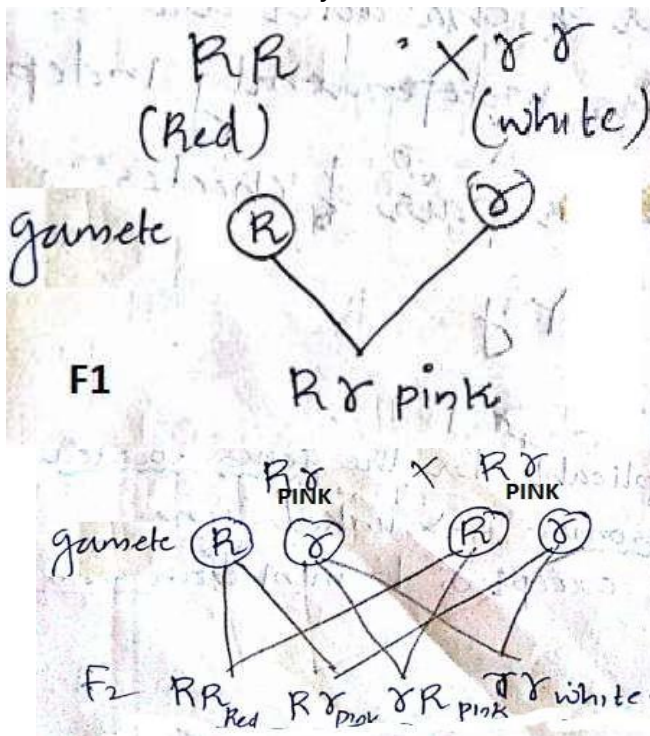 RR × rr
(Red) (white)
gamete R r
F1 Rr pink
Rr × Rr
PINK PINK
gamete R r R r
F2 RR Red Rr pink rR pink rr white